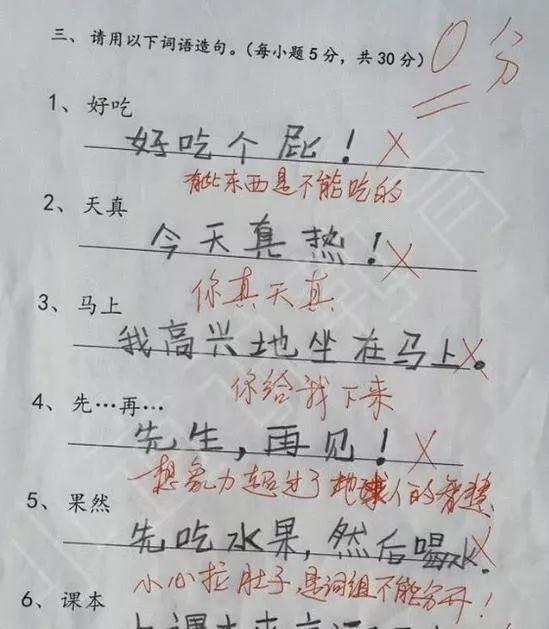 三、请用以下词语造句。（每小题5分，共30分）
0分
1、好吃
好吃个屁！
有些东西是不能吃的
2、天真
今天真热！
你真天真
3、马上
我高兴地坐在马上。
你给我下来
4、先…再…
先生，再见！
想象力超过了地球人的智慧
5、果然
先吃水果，然后喝水
小心拉肚子，是词组不能分开！
6、课本
上课本来